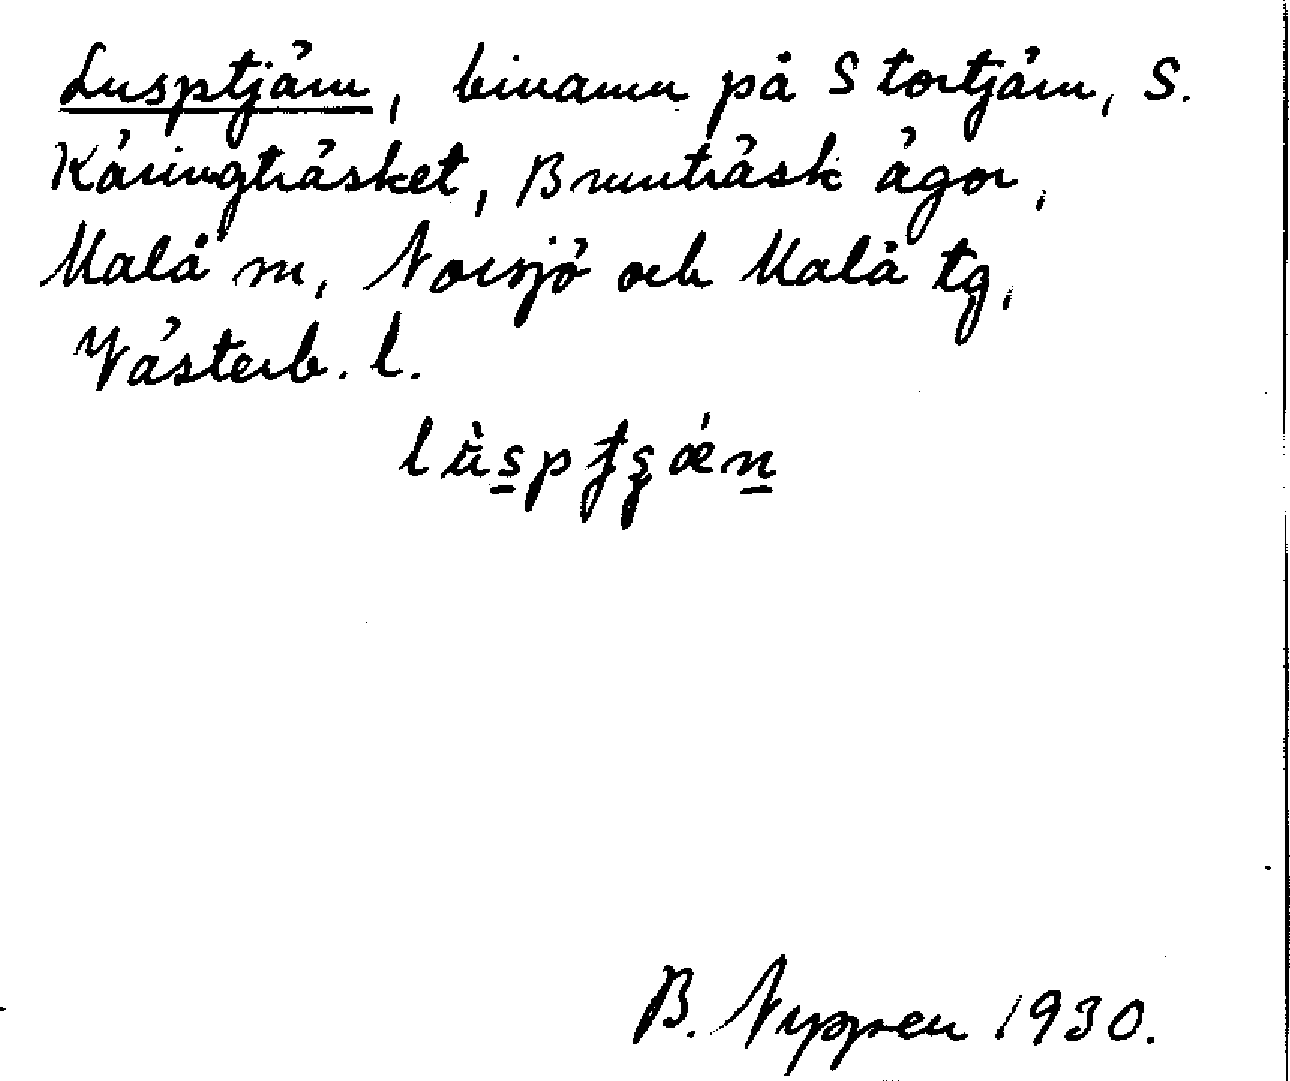 Lusptjärn, binamn på Stortjärn, S.
Käringträsket, Brunträsk ägor,
Malå sn, Norsjö och Malå tg,
Västerb. l.
B. Nyppen 1930.